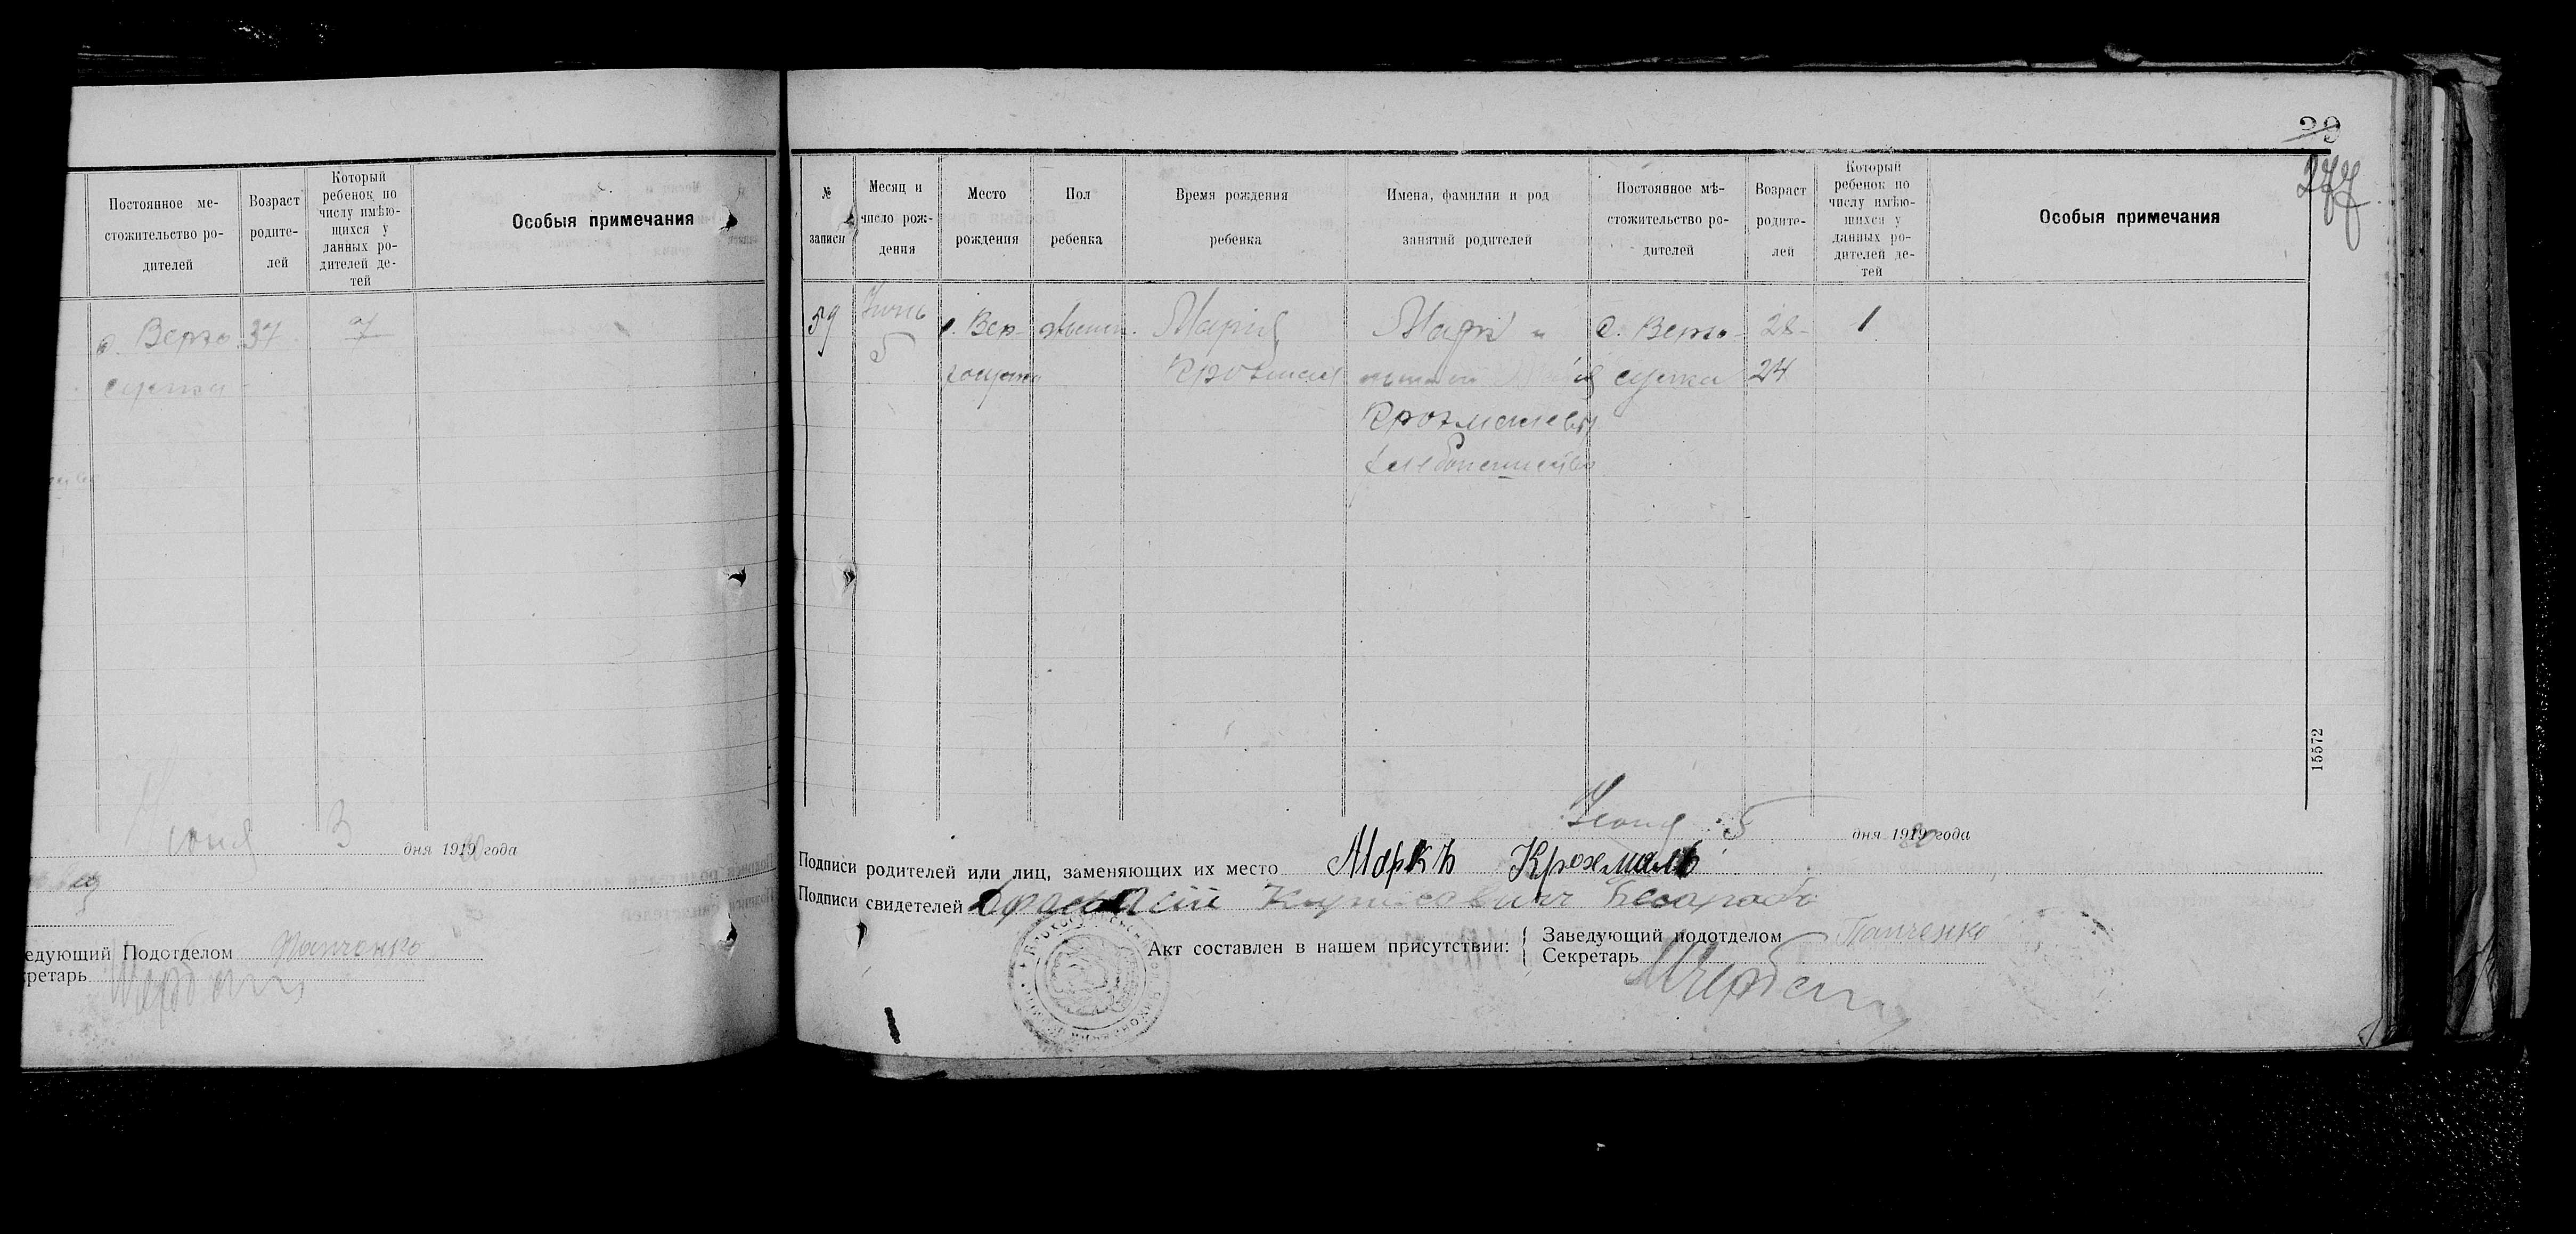 Постоянное ме-
стожительство ро-
дителей
Возраст
родите-
лей
Который
ребенок по
числу имѣю-
щихся у
данных ро-
дителей де-
тей
Особыя примечания
с. Верхо
37
7
суnка
Июня 3 дня 1920 года
едующий Подотделом Панченко
кретарь
29
277
№
записи
Месяц и
число рож-
дения
Место
рождения
Пол
ребенка
Время рождения
ребенка
Имена, фамилии и род
занятий родителей
Постоянное мѣ-
стожительство ро-
дителей
Возраст
родите-
лей
Который
ребенок по
числу имѣю-
щихся у
данных ро-
дителей де-
тей
Особыя примечания
59
Июнь
5
с. Вер-
женск.
Мария
Крохмаль
Марк и
Крохмалевы
хлебопашество
с. Верхо-
28
24
1
Июня 5 дня 1920 года
Подписи родителей или лиц, заменяющих их место Маркъ Крохмаль
Подписи свидетелей
Акт составлен в нашем присутствии:
Заведующий подотделом Панченко
Секретарь
15572